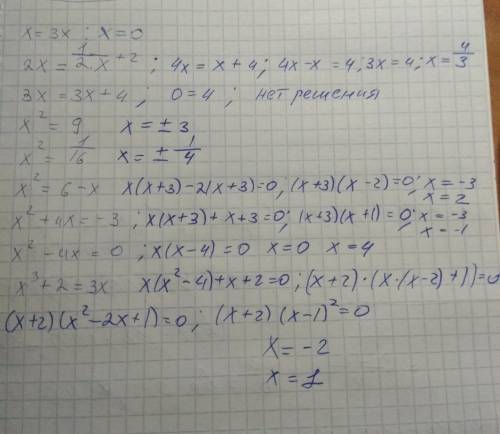 x = 3x ; x = 0
2x = 1/2 x + 2 ; 4x = x + 4 ; 4x - x = 4 ; 3x = 4 ; x = 4/3
3x = 3x + 4 ; 0 = 4 ; нет решения
x² = 9 x = ± 3
x² = 1/16 x = ± 1/4
x² = 6 - x x(x+3) - 2(x+3) = 0 ; (x+3)(x-2) = 0 ; x = -3
x = 2
x² + 4x = -3 ; x(x+3) + x + 3 = 0 ; (x+3)(x+1) = 0 ; x = -3
x = -1
x² - 4x = 0 ; x(x-4) = 0 x = 0 x = 4
x³ + 2 = 3x x(x²-4) + x + 2 = 0 ; (x+2)·(x·(x-2)+1) = 0
(x+2)(x²-2x+1) = 0 ; (x+2)(x-1)² = 0
x = -2
x = 1